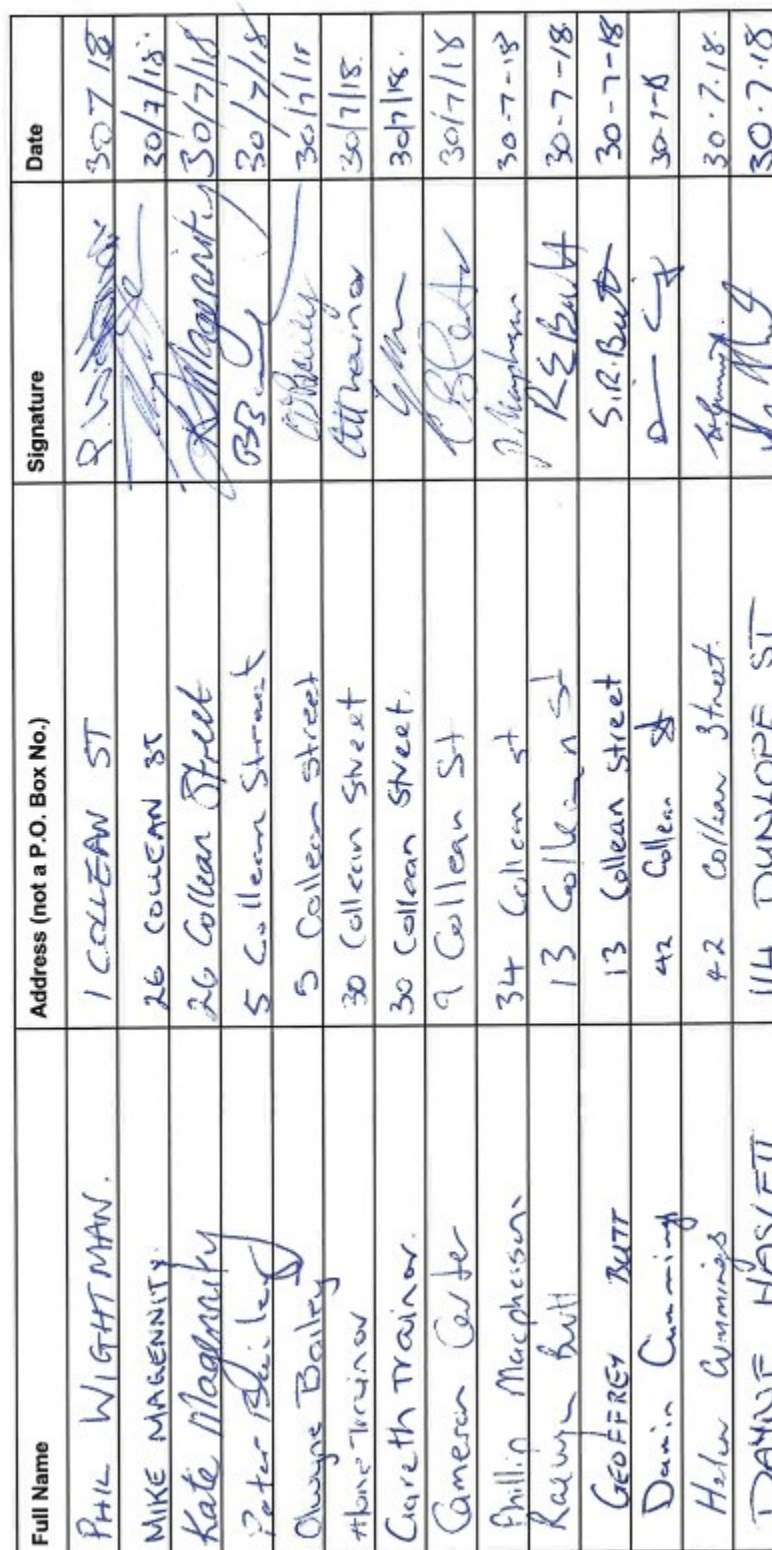 Full Name Address (not a P.O. Box No.) Signature Date
PHIL WIGHTMAN. 1 COLLEAN ST 30 7 18
MIKE MAGENNITY. 26 COLLEAN ST 30/7/18.
Kate Magennity 26 Collean Street K Magennity 30/7/18
Peter Bailey 5 Collean Street 30/7/18
Olwyne Bailey 5 Collean Street 30/7/18
Trainor 30 Collean Street 30/7/18.
Gareth Trainor. 30 Collean Street. 30/7/18.
Cameron Carter 9 Collean St 30/7/18
Phillip Macpherson 34 Collean St 30-7-18
Raewyn Butt 13 Collean St R E Butt 30-7-18.
GEOFFREY BUTT 13 Collean Street 30-7-18
Damin Cummings 42 Collean St 30-7-18
Helen Cummings 42 Collean Street. 30.7.18.
114 DUNLOPE ST 30.7.18